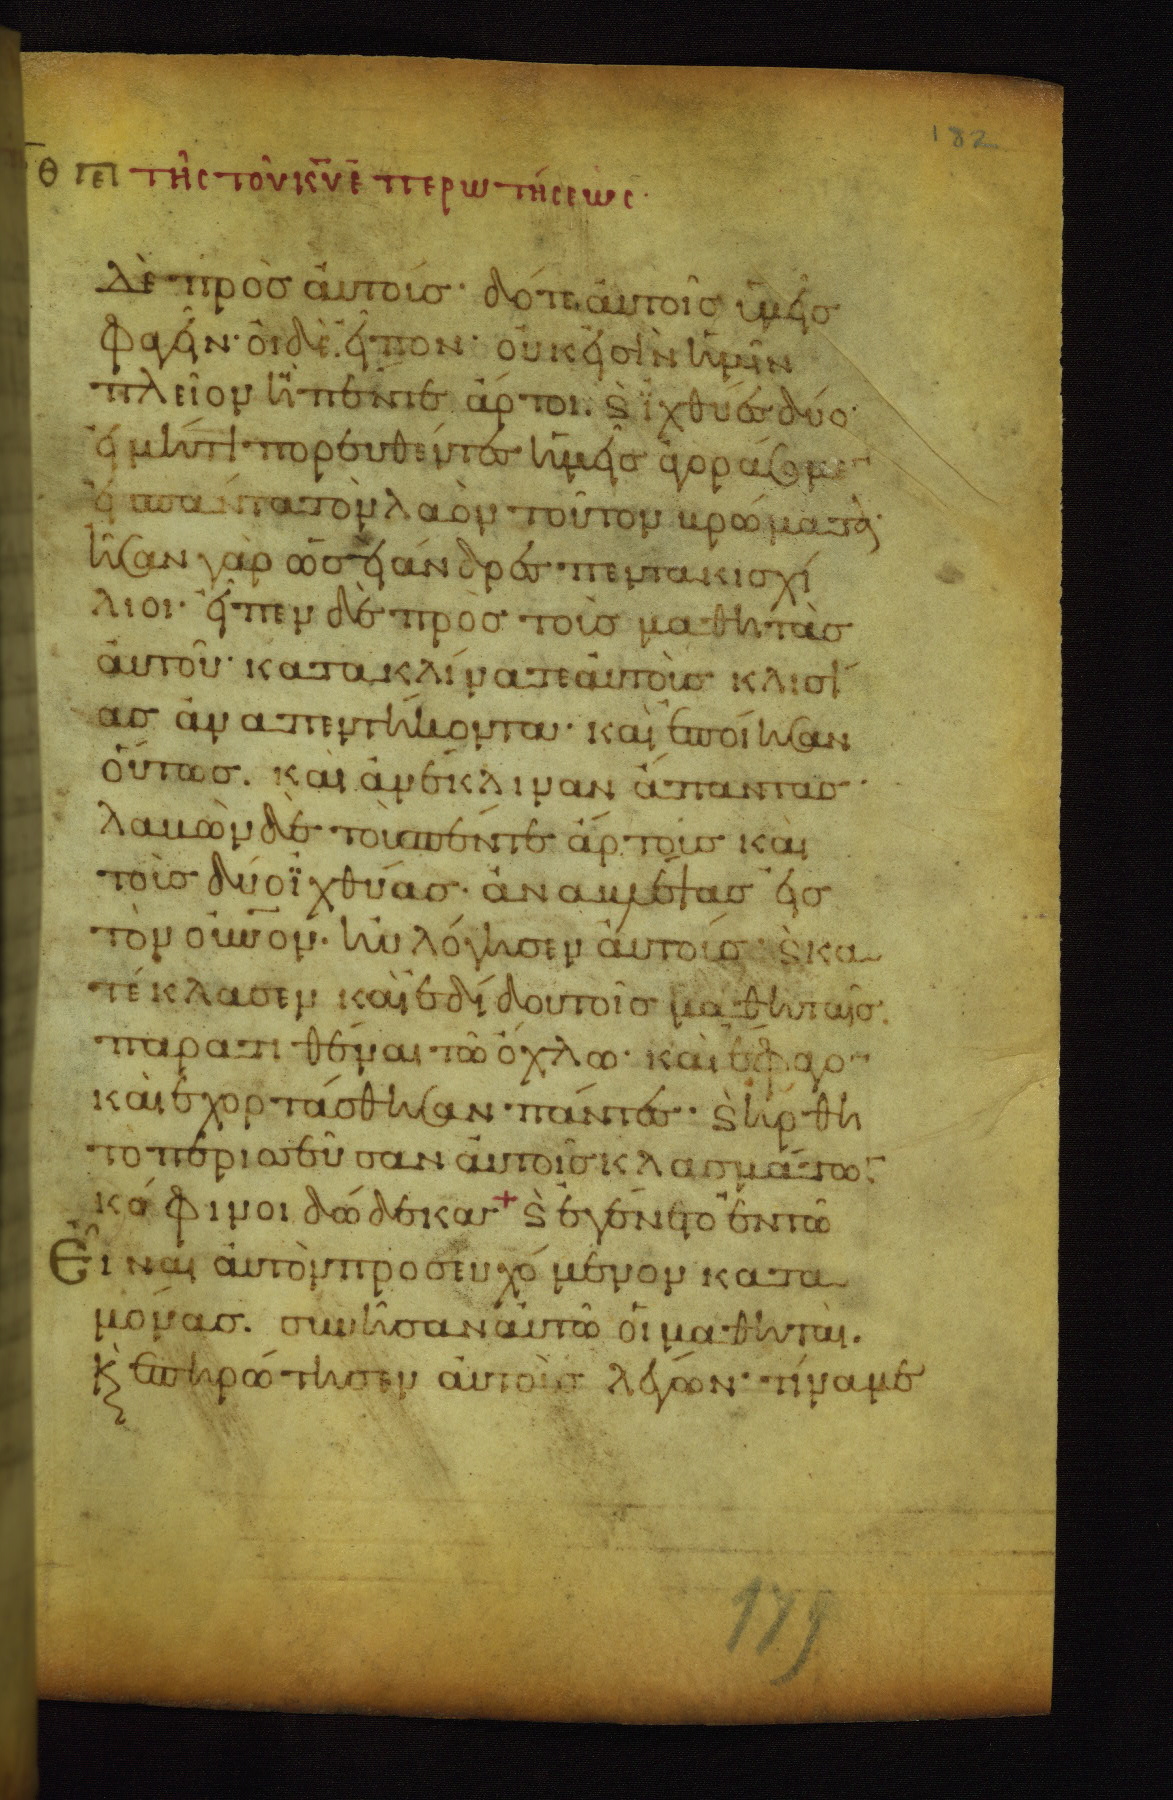 182
θ πε τῆς τοῦ κ̅υ̅ ἐπερωτήσεως·
δὲ πρὸσ ἀυτούσ· δότε ἀυτοῖσ ὑμεῖσ
φαγεῖν· ὁι δὲ ἐῖπον· ὀυκ ἐισὶν ἡμῖν
πλεῖον ἢ πέντε ἄρτοι. ϗ ἰχθύεσ δύο·
ἐι μήτι πορευθέντεσ ἡμεῖσ ἀγοράσομεν
ἐισ πάντα τὸν λαὸν τοῦτον βρώματα·
ἦσαν γὰρ ὡσεὶ ἄνδρεσ πεντακισχί
λιοι· ἐῖπεν δὲ πρὸσ τοὺσ μαθητὰσ
ἀυτοῦ· κατακλίνατε ἀυτοὺσ κλισί
ασ ἀνὰ πεντήκοντα· καὶ ἐποίησαν
ὅυτωσ. καὶ ἀνέκλιναν ἅπαντασ·
λαβὼν δὲ τοὺσ πέντε ἄρτουσ καὶ
τοὺσ δύο ἰχθύασ· ἀναβλέψασ ἐισ
τὸν ὀυ̅νον· ηὐλόγησεν ἀυτούσ· ϗ κα
τέκλασεν καὶ ἐδίδου τοῖσ μαθηταῖσ.
παρατιθέναι τῶ ὄχλω· καὶ ἔφαγον
καὶ ἐχορτάσθησαν πάντεσ· ϗ ἤρθη
τὸ περισσεῦσαν ἀυτοῖσ κλασμάτων
κόφινοι δώδεκα + ϗ ἐγένετο ἐν τῶ
Εἶναι ἀυτὸν προσευχόμενον κατα
μόνασ. συνῆσαν ἀυτῶ ὁι μαθηταί.
ϗ ἐπηρώτησεν ἀυτοὺσ λέγων· τίνα με
179